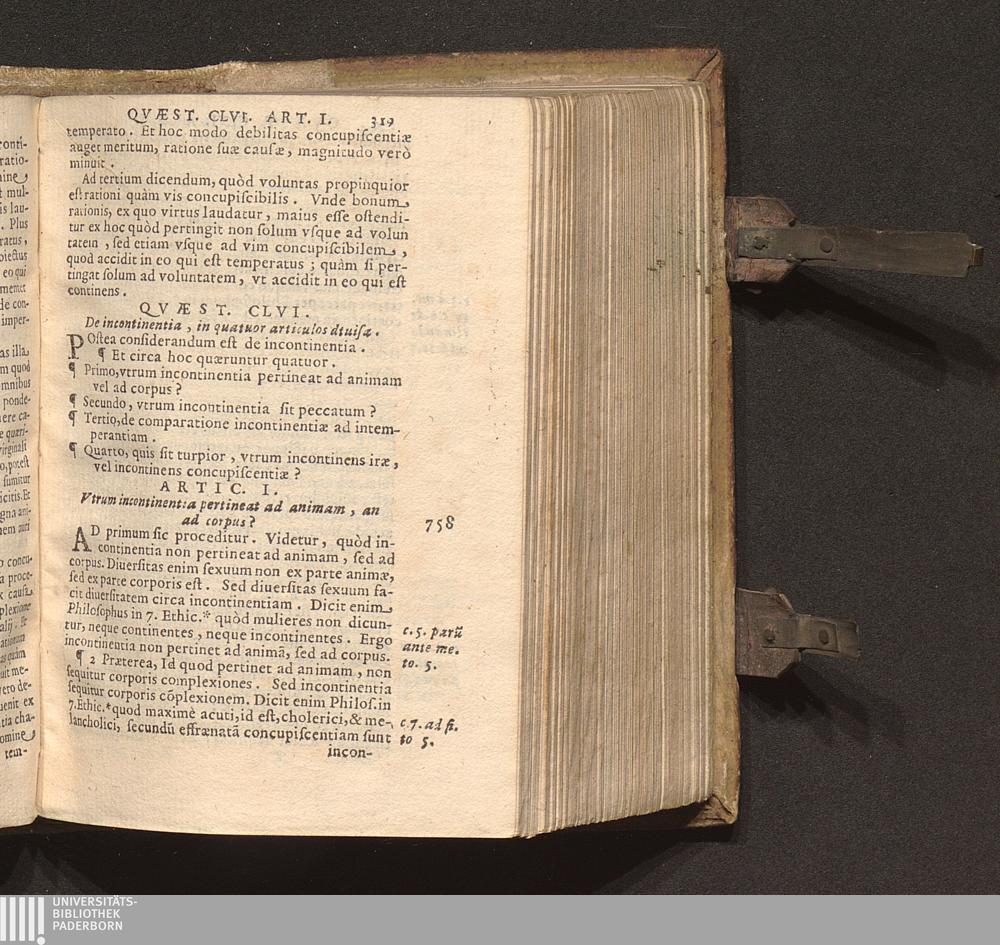 QVÆST. CLVI. ART. I. 319
temperato. Et hoc modo debilitas concupiſcentiæ
auget meritum, ratione ſuæ cauſæ, magnitudo verò
minuit.
Ad tertium dicendum, quòd voluntas propinquior
eſt rationi quàm vis concupiſcibilis. Vnde bonum
rationis, ex quo virtus laudatur, maius eſſe oſtendi-
tur ex hoc quòd pertingit non ſolum vſque ad volun
tatem, ſed etiam vſque ad vim concupiſcibilem,
quod accidit in eo qui eſt temperatus; quàm ſi per-
tingat ſolum ad voluntatem, vt accidit in eo qui eſt
continens.
QVÆST. CLVI.
De incontinentia, in quatuor articulos diuiſa.
POſtea conſiderandum eſt de incontinentia.
¶ Et circa hoc quæruntur quatuor.
¶ Primo, vtrum incontinentia pertineat ad animam
vel ad corpus?
¶ Secundo, vtrum incontinentia ſit peccatum?
¶ Tertio, de comparatione incontinentiæ ad intem-
perantiam.
¶ Quarto, quis ſit turpior, vtrum incontinens iræ,
vel incontinens concupiſcentiæ?
ARTIC. I.
Vtrum incontinentia pertineat ad animam, an
ad corpus?
758
AD primum ſic proceditur. Videtur, quòd in-
continentia non pertineat ad animam, ſed ad
corpus. Diuerſitas enim ſexuum non ex parte animæ,
ſed ex parte corporis eſt. Sed diuerſitas ſexuum fa-
cit diuerſitatem circa incontinentiam. Dicit enim
Philoſophus in 7. Ethic.* quòd mulieres non dicun-
tur, neque continentes, neque incontinentes. Ergo
incontinentia non pertinet ad animã, ſed ad corpus.
c. 5. parũ
ante me.
to. 5.
¶ 2 Præterea, Id quod pertinet ad animam, non
ſequitur corporis complexiones. Sed incontinentia
ſequitur corporis cõplexionem. Dicit enim Philoſ. in
7. Ethic.* quod maximè acuti, id eſt, cholerici, & me-
lancholici, ſecundũ effrænatã concupiſcentiam ſunt
c. 7. ad fi.
to 5.
incon-
UNIVERSITÄTS-
BIBLIOTHEK
PADERBORN